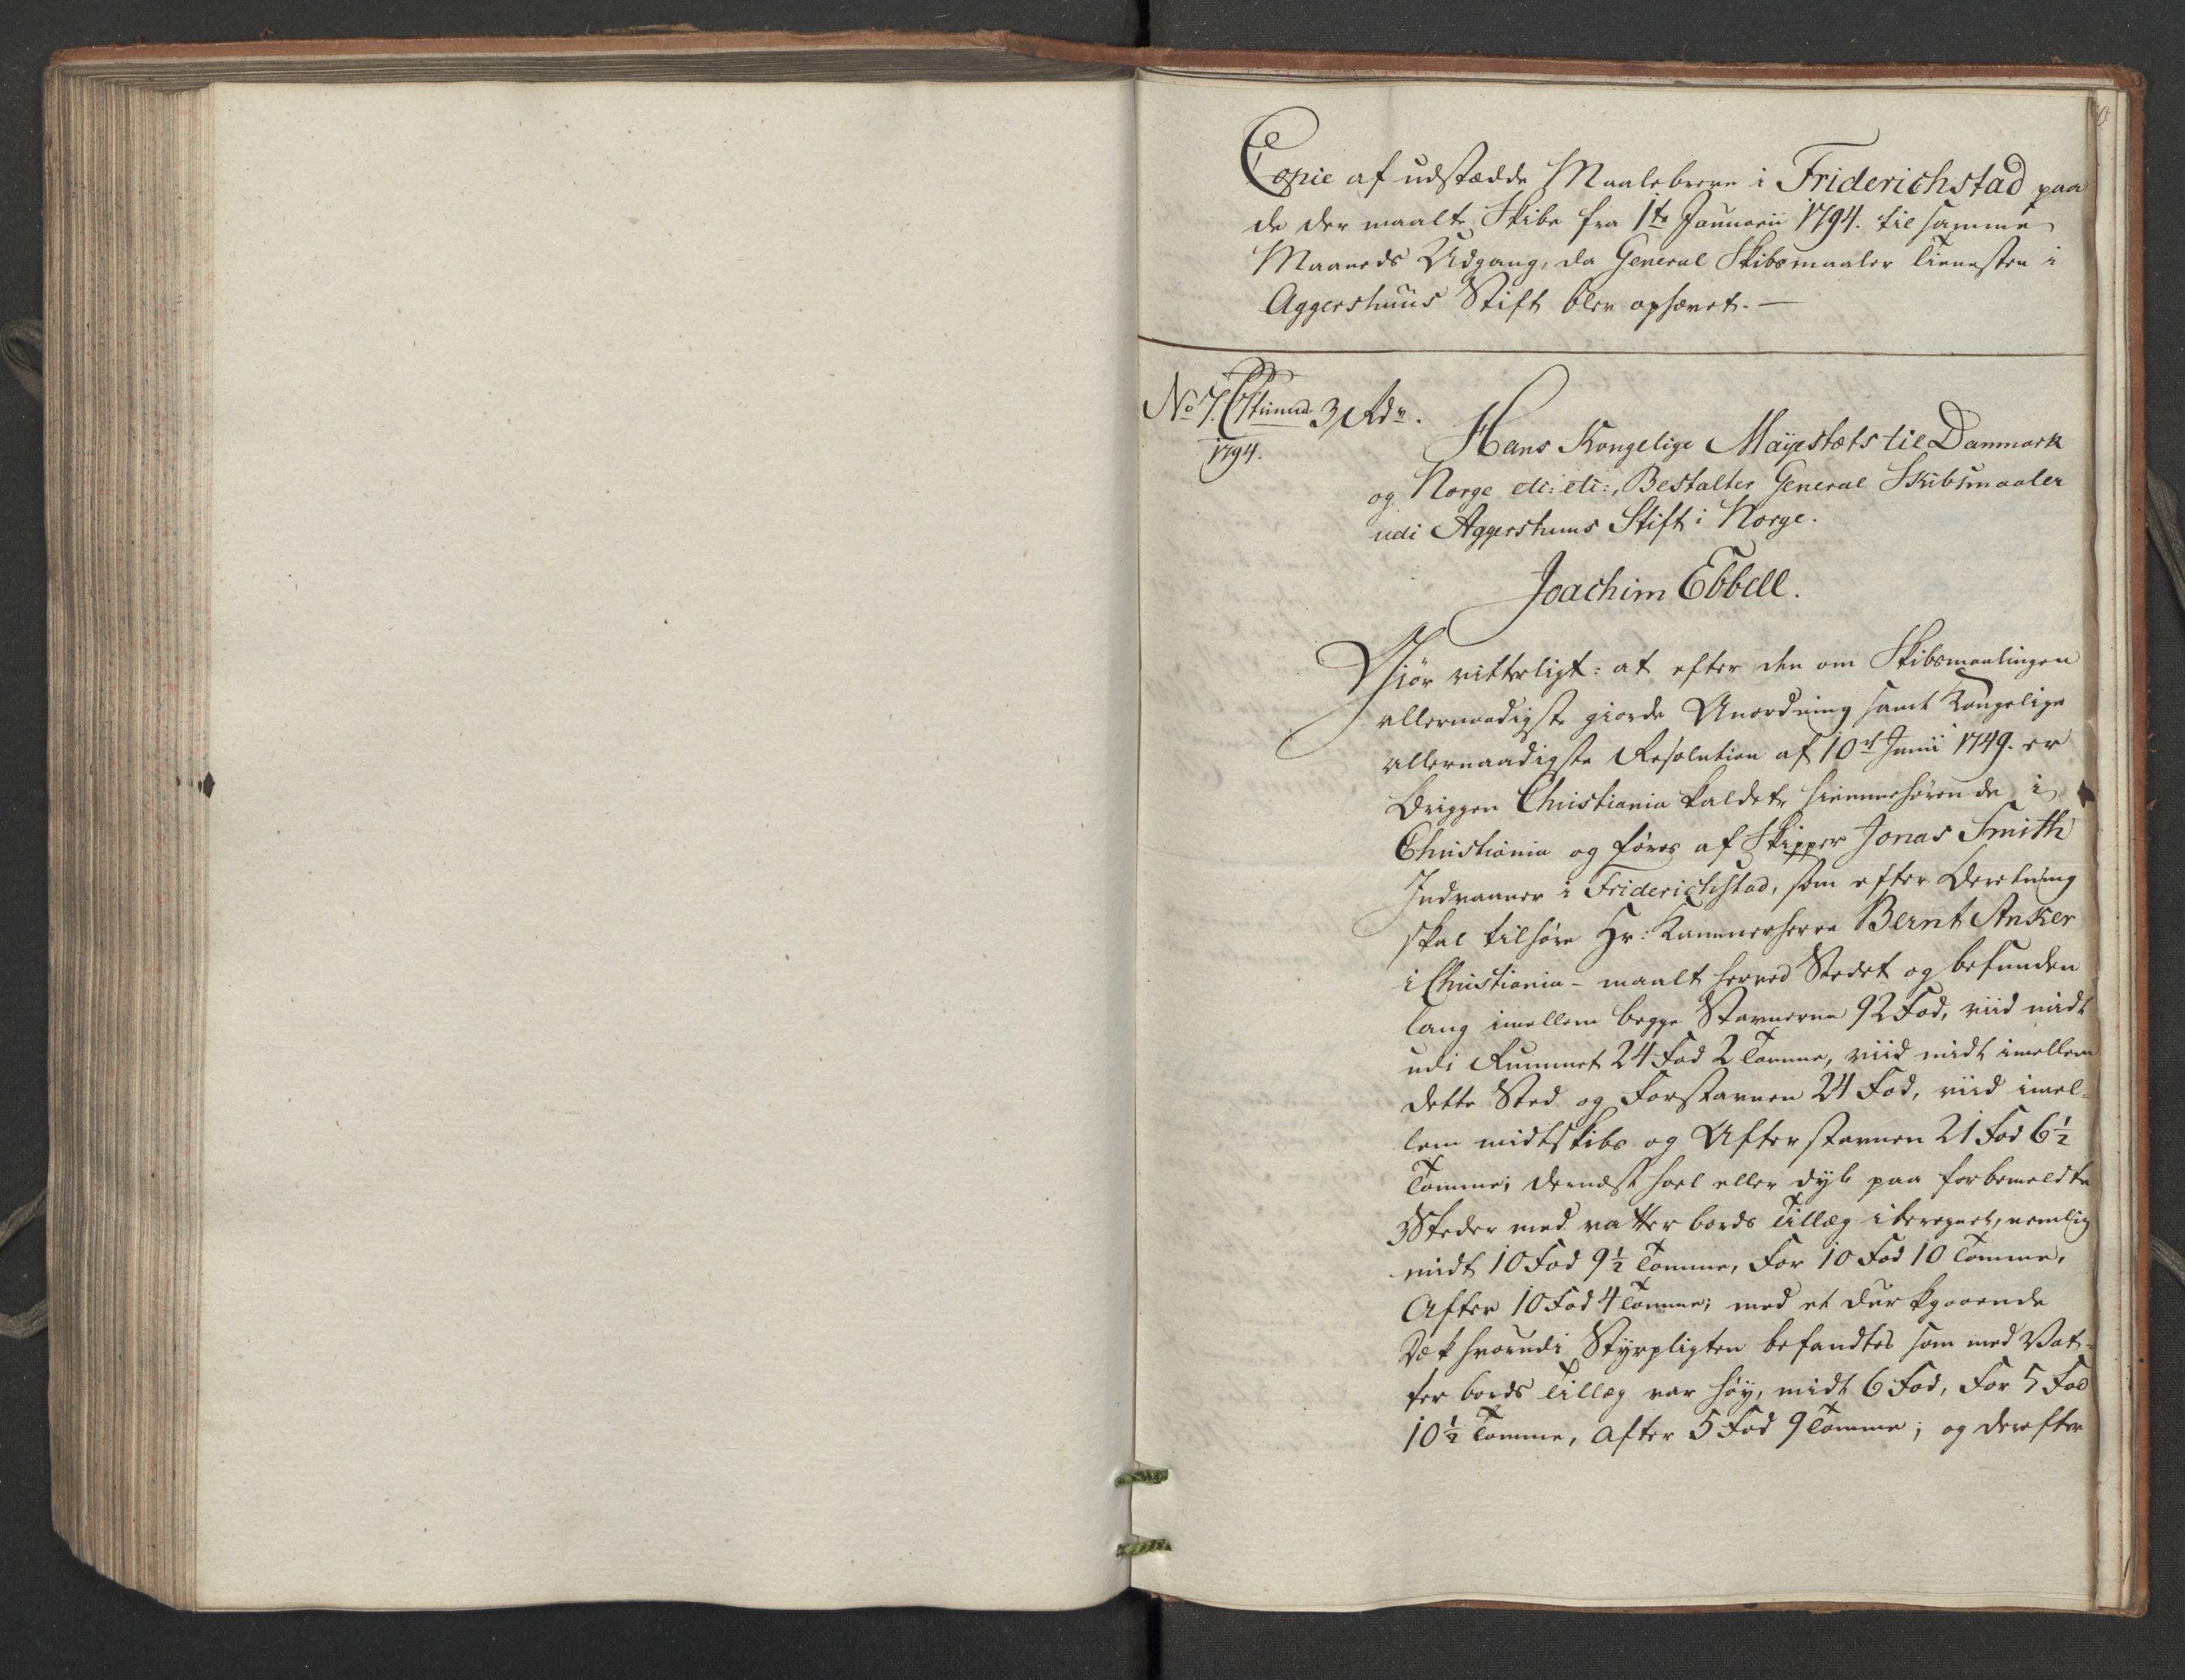 Copie af udstædde Maalebreve i Friderichstad paa
de der maalte Skibe fra 1te Januarii 1794. til samme
Maaneds Udgang, da General Skibsmaaler Tienesten i
Aggershuus Stift blev ophævet. —
No 7. 3 Rdr.
1794.
Hans Kongelige Mayestæts til Danmark
og Norge etc: etc:, Bestalter General Skibsmaaler
udi Aggershuus Stift i Norge.
Joachim Ebbell.
Giør vitterligt: at efter den om Skibsmaalingen
allernaadigste giorde Anordning samt Kongelige
allernaadigste Resolution af 10de Junii 1749. er
Briggen Christiania kaldet, hiemmehørende i
Christiania og føres af Skipper Jonas Smith
Indvaaner i Friderichstad, som efter Beretning
skal tilhøre Hr: Kammerherre Bernt Anker
i Christiania - maalt herved Stedet og befunden
lang imellem begge Stavnerne 92 Fod, viid midt
udi Rummet 24 Fod 2 Tomme, viid midt imellem
dette Sted og Forstavnen 24 Fod, viid imel-
lem midtskibs og Afterstavnen 21 Fod 6½
Tomme; dernæst hoel eller dyb paa forbemeldte
3 Steder med vatter bords Tillæg iberegnet, nemlig
midt 10 Fod 9½ Tomme, For 10 Fod 10 Tomme,
After 10 Fod 4 Tomme; med et Durkgaaende
Dæk hvorudi Styrpligten befandtes som med Vat-
ter bords Tillæg var høy, midt 6 Fod, For 5 Fod
10½ Tomme, After 5 Fod 9 Tomme; og derefter